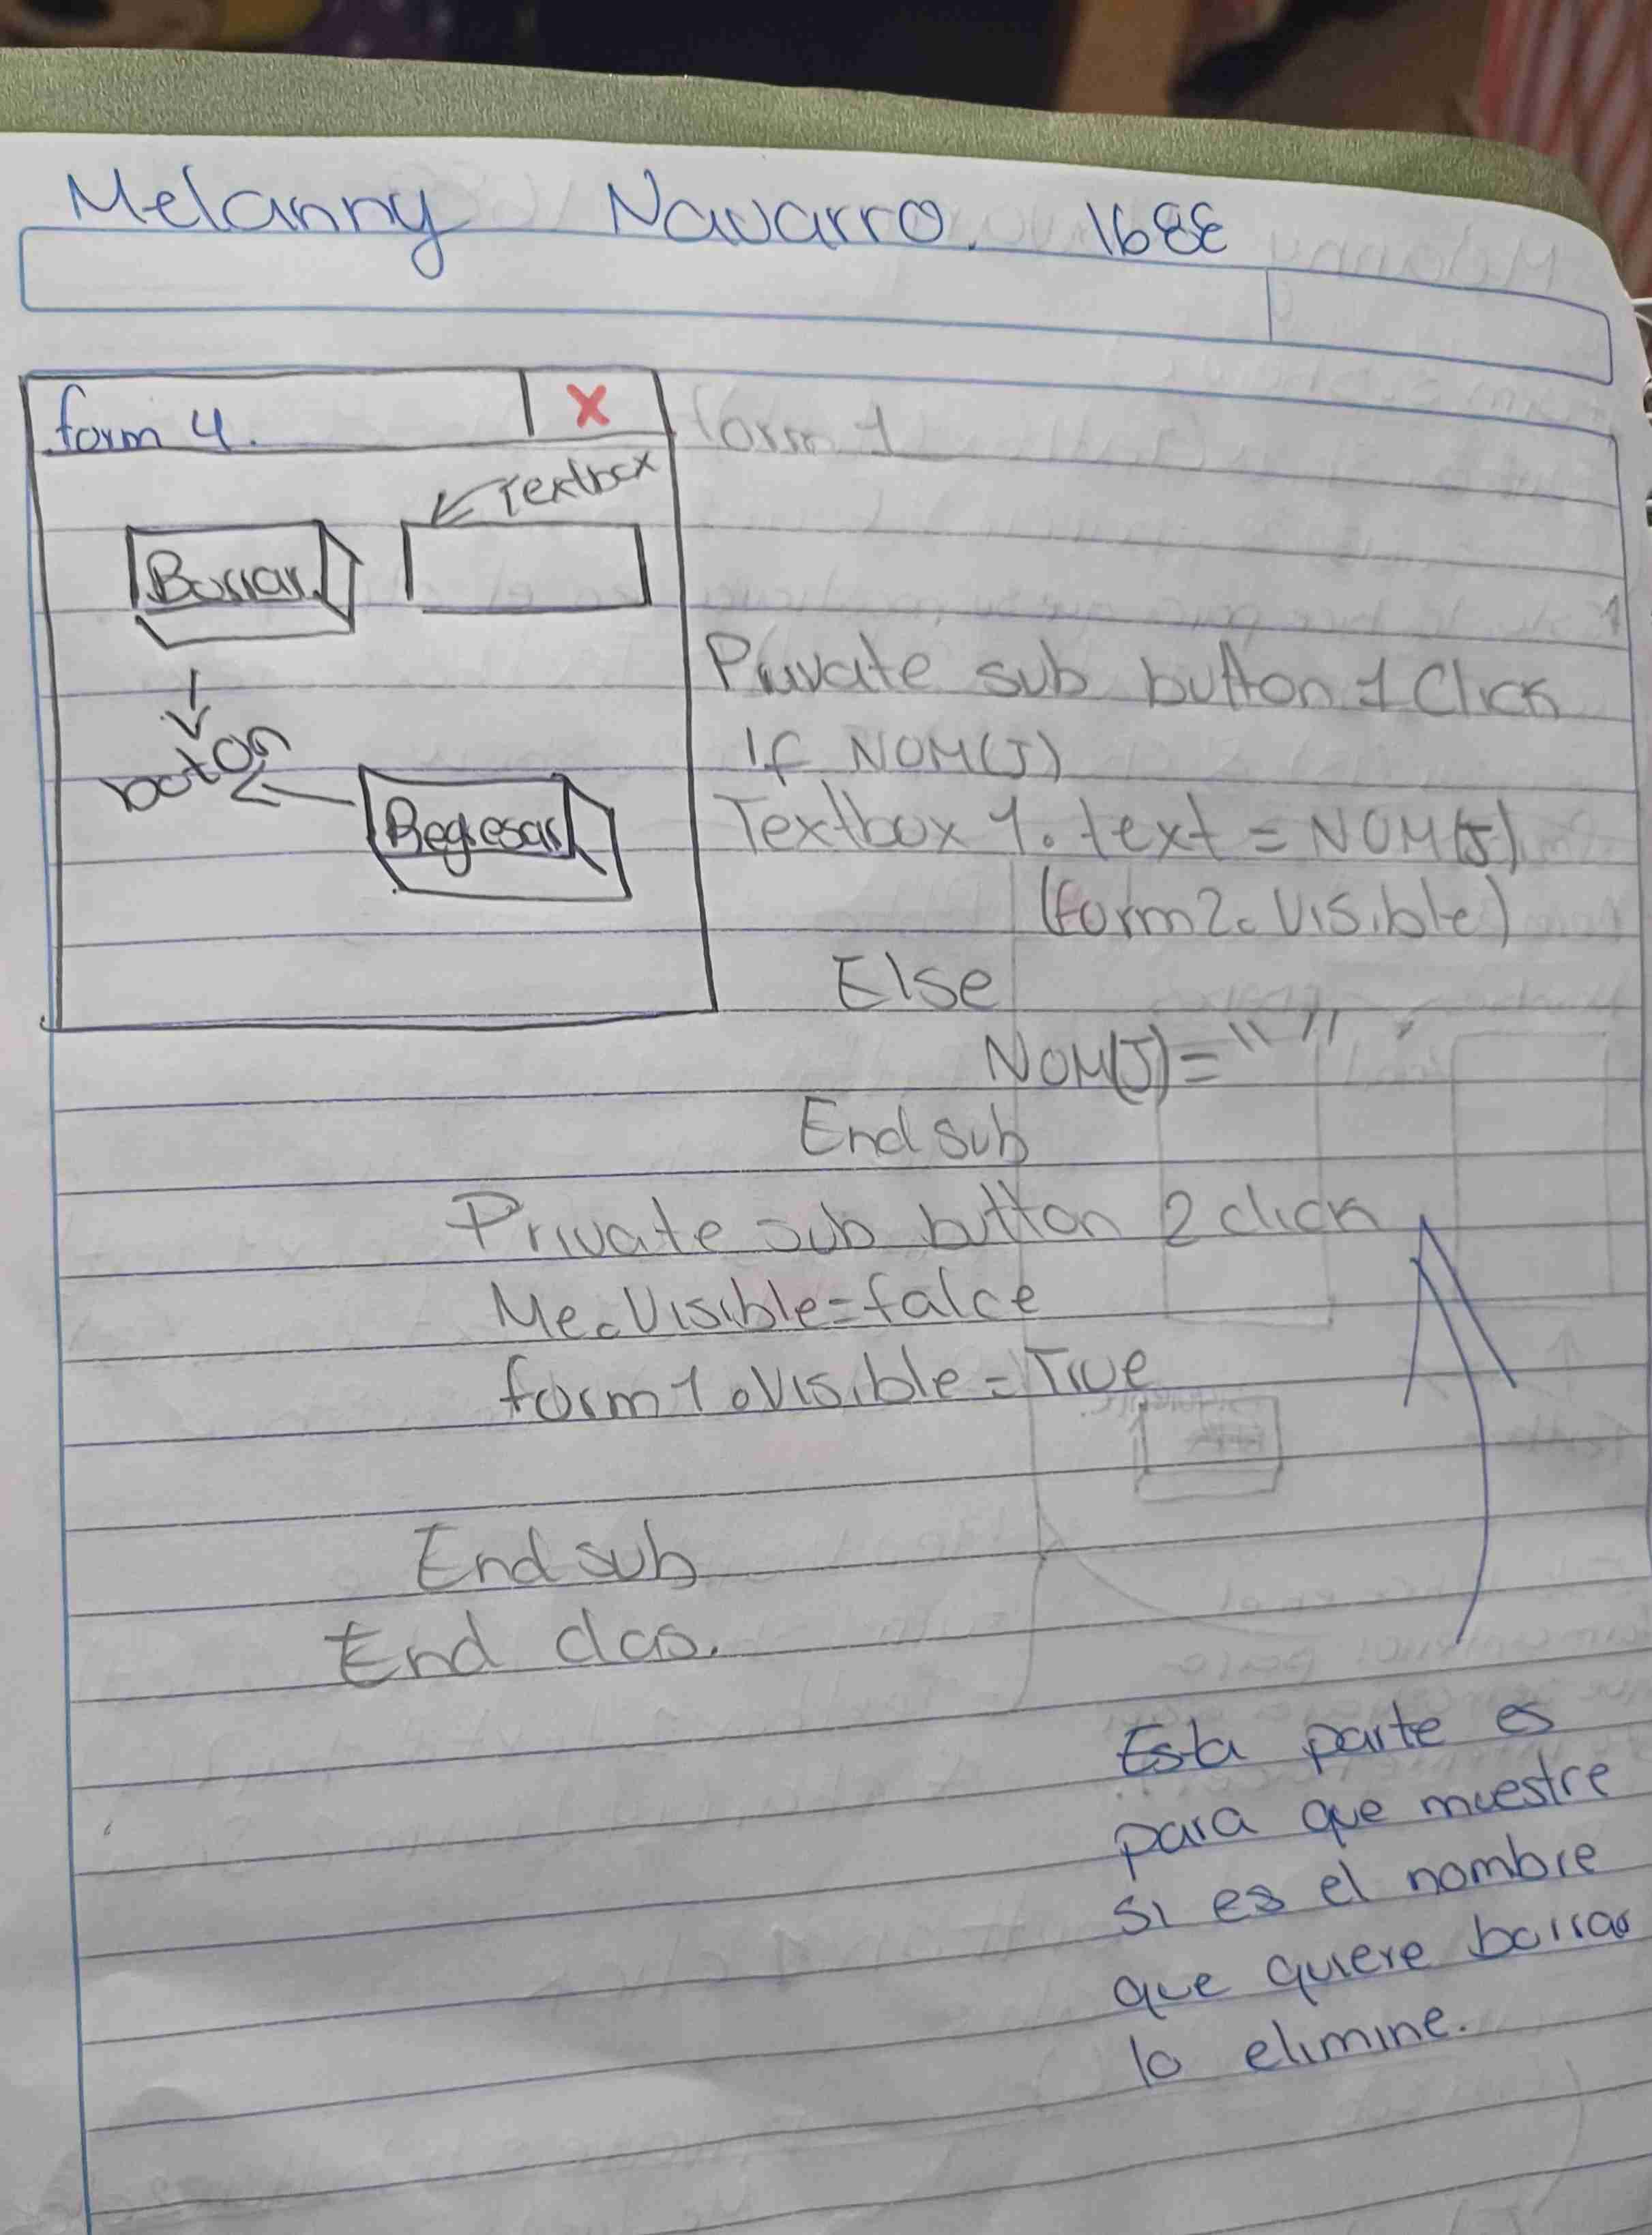 Melanny Navarro. 168E
form 4. X
Textbox
Borrar
boton
Regresar
form 1
Private sub button 1 Click
If NOM(J)
Textbox 1. text = NOM(J)
(form2. Visible)
Else
NOM(J)=" "
End sub
Private sub button 2 click
Me. Visible=falce
form 1. Visible=True
End sub
End clas.
Esta parte es
para que muestre
si es el nombre
que quiere borrar
lo elimine.